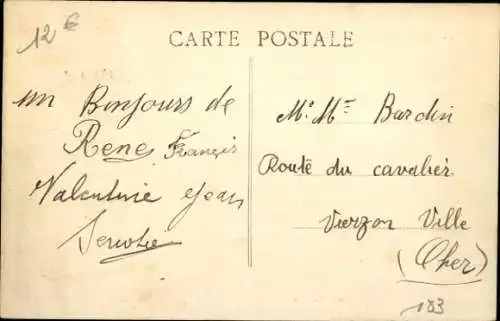 12 €
CARTE POSTALE
un Bonjours de
Rene Français
Valentine Jean
M. Mme Bardin
Route du cavalier
Vierzon Ville
(Cher)
183